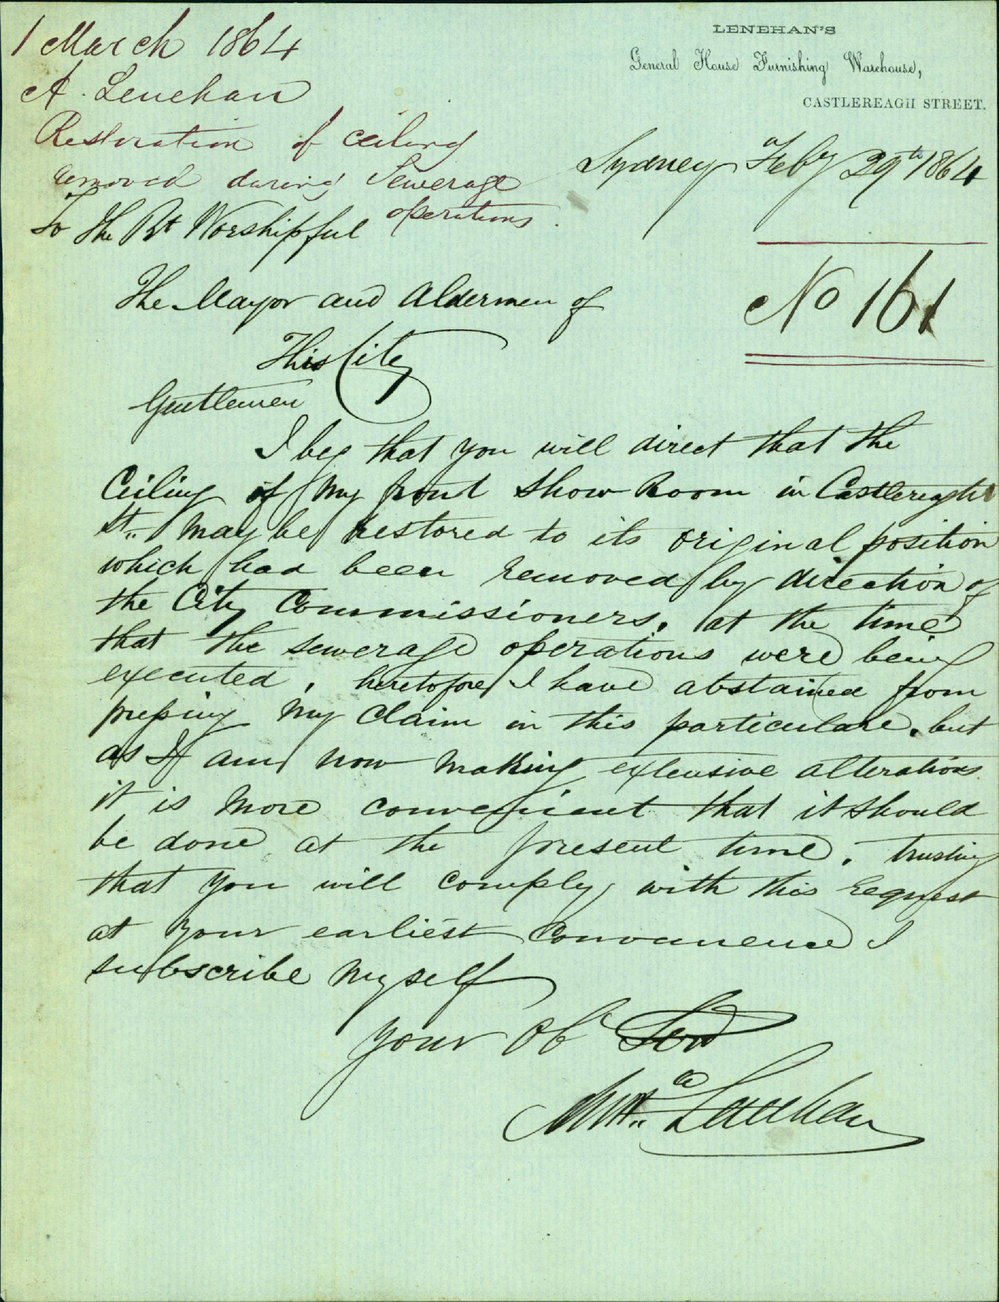 1 March 1864
A. Lenehan
Restoration of ceiling
removed during Sewerage
operations.
LENEHAN'S
General House Furnishing Warehouse,
CASTLEREAGH STREET.
Sydney Feby 29th 1864
No 161
To The Rt Worshipful
The Mayor and Aldermen of
This City
Gentlemen
I beg that you will direct that the
Ceiling of my front Show Room in Castlereagh
St.. may be restored to its original position
which had been removed by direction of
the City Commissioners, at the time
that the sewerage operations were being
executed, heretofore I have abstained from
my claim in this particulare, but
as I am now making extensive alterations
it is more convenient that it should
be done at the present time. trusting
that you will comply with this request
at your earliest convenience I
subscribe myself
Your Ob Serv
Lenehan